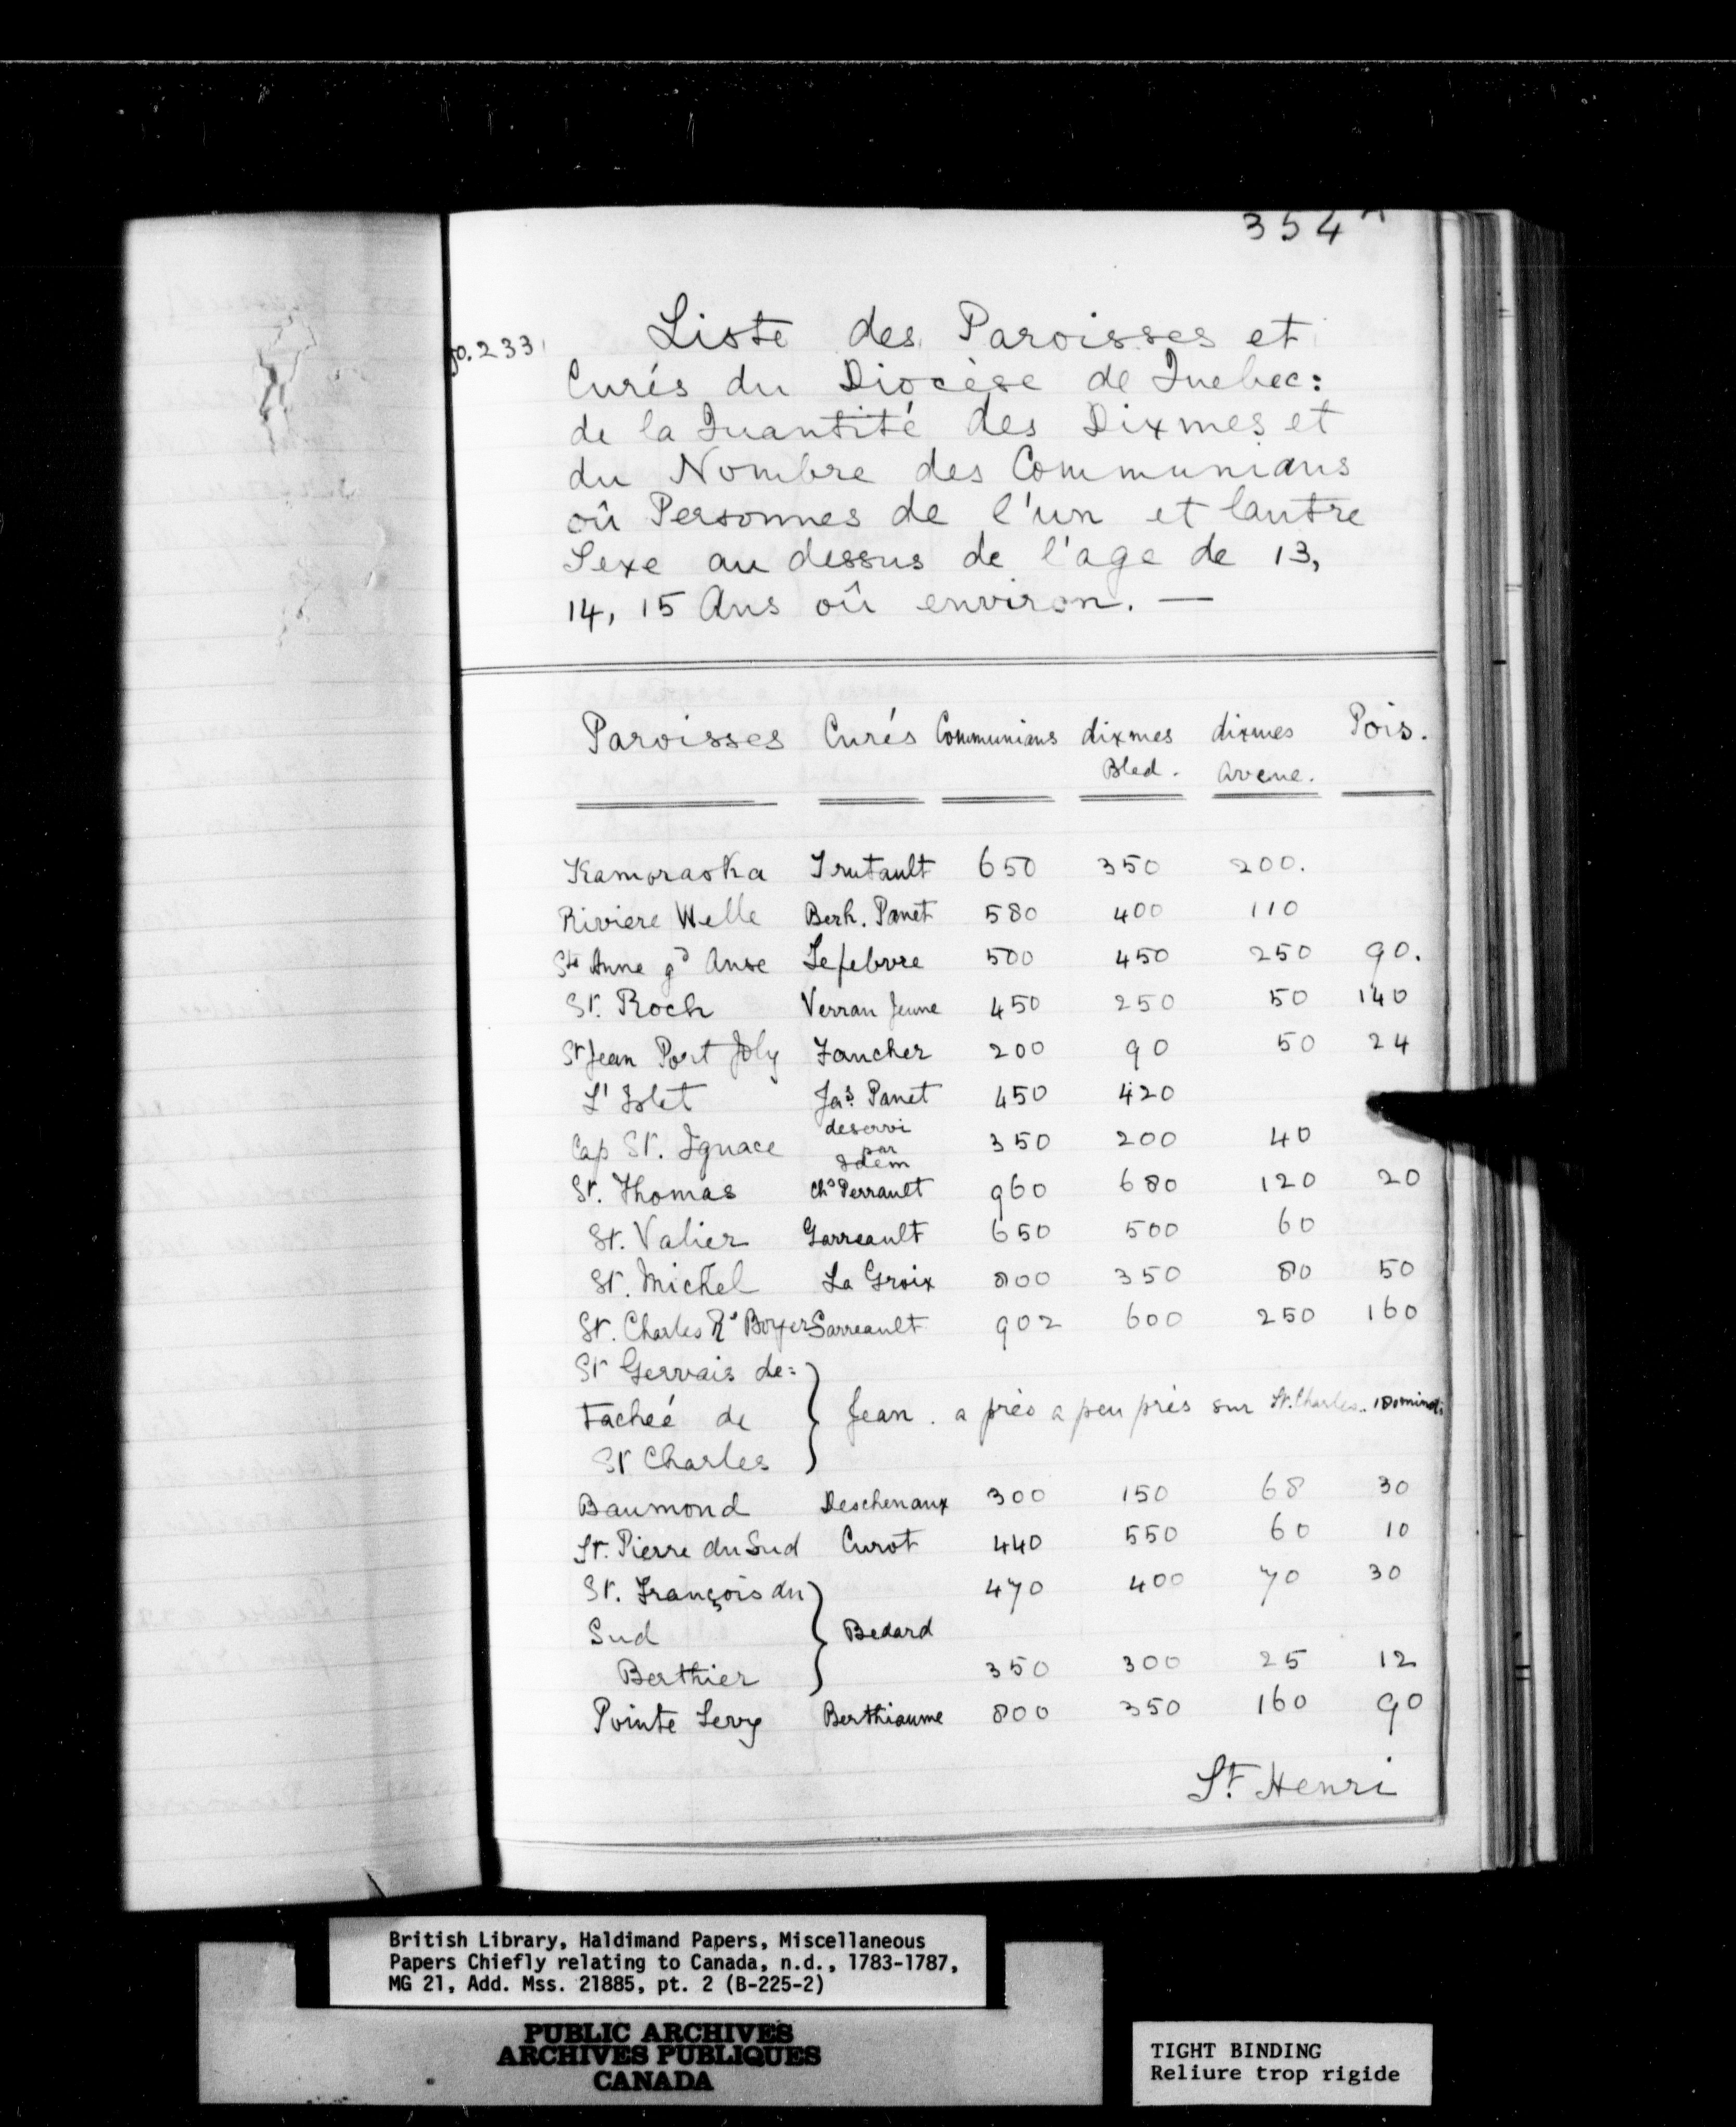 354 A
fo. 233.
Liste des Paroisses et
Curés du Diocèse de Quebec:
de la Quantité des Dixmes et
du Nombre des Communians
oû Personnes de l'un et lautre
Sexe au dessus de l'age de 13,
14, 15 Ans oû environ. —
Paroisses Curés Communians dixmes Bled. dixmes Avene. Pois.
Kamoraska Trutault 650 350 200.
Riviere Welle Berh. Panet 580 400 110
Ste Anne gd Anse Lefebvre 500 450 250 90.
St. Roch Verran Jeune 450 250 50 140
St Jean Port Joly Faucher 200 90 50 24
L'Islet Jas. Panet 450 420
Cap St. Ignace deservi par Idem 350 200 40
St. Thomas Chs Perrault 960 680 120 20
St. Valier Garreault 650 500 60
St. Michel La Groix 800 350 80 50
St. Charles Rs Boyer Sarreault 902 600 250 160
St Gervais de=
tacheé de } Jean. a près a peu près sur St. Charles..
St Charles
Baumond Deschenaux 300 150 68 30
St. Pierre du Sud Curot 440 550 60 10
St. François du 470 400 70 30
Sud } Bedard
Berthier 350 300 25 12
Pointe Levy Berthiaume 800 350 160 90
St. Henri
British Library, Haldimand Papers, Miscellaneous
Papers Chiefly relating to Canada, n.d., 1783-1787,
MG 21, Add. Mss. 21885, pt. 2 (B-225-2)
PUBLIC ARCHIVES
ARCHIVES PUBLIQUES
CANADA
TIGHT BINDING
Reliure trop rigide